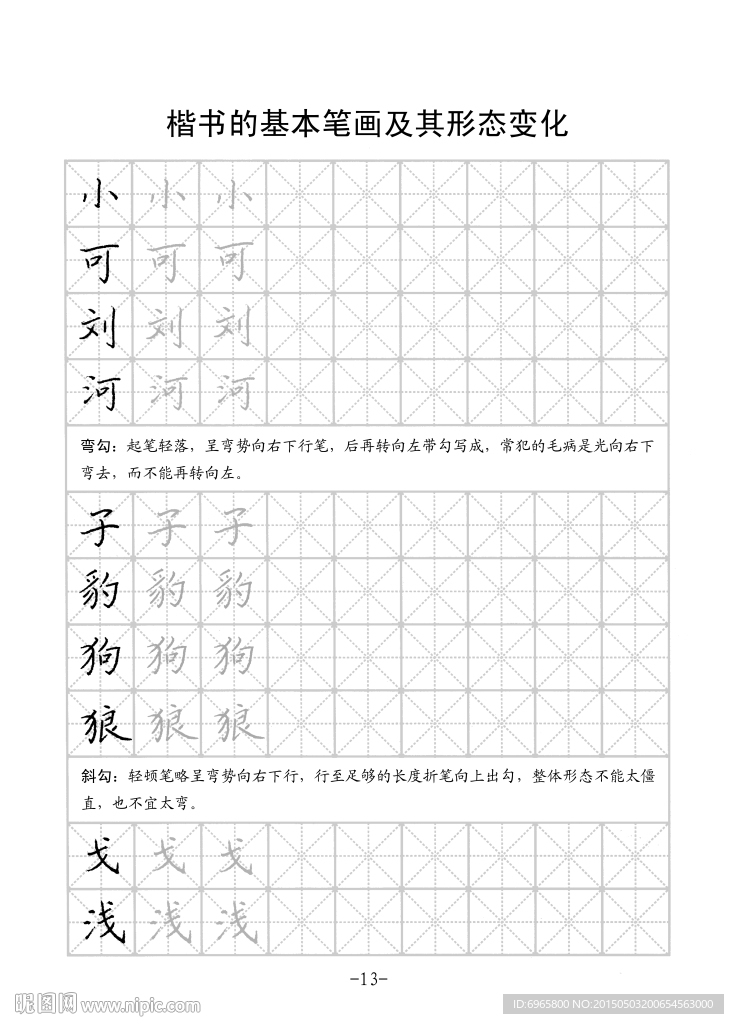 楷书的基本笔画及其形态变化
小 小 小
可 可 可
刘 刘 刘
河 河 河
弯勾：起笔轻落，呈弯势向右下行笔，后再转向左带勾写成，常犯的毛病是光向右下
弯去，而不能再转向左。
子 子 子
豹 豹 豹
狗 狗 狗
狼 狼 狼
斜勾：轻顿笔略呈弯势向右下行，行至足够的长度折笔向上出勾，整体形态不能太僵
直，也不宜太弯。
戈 戈 戈
浅 浅 浅
-13-
昵图网 www.nipic.com
ID:6965800 NO:20150503200654563000